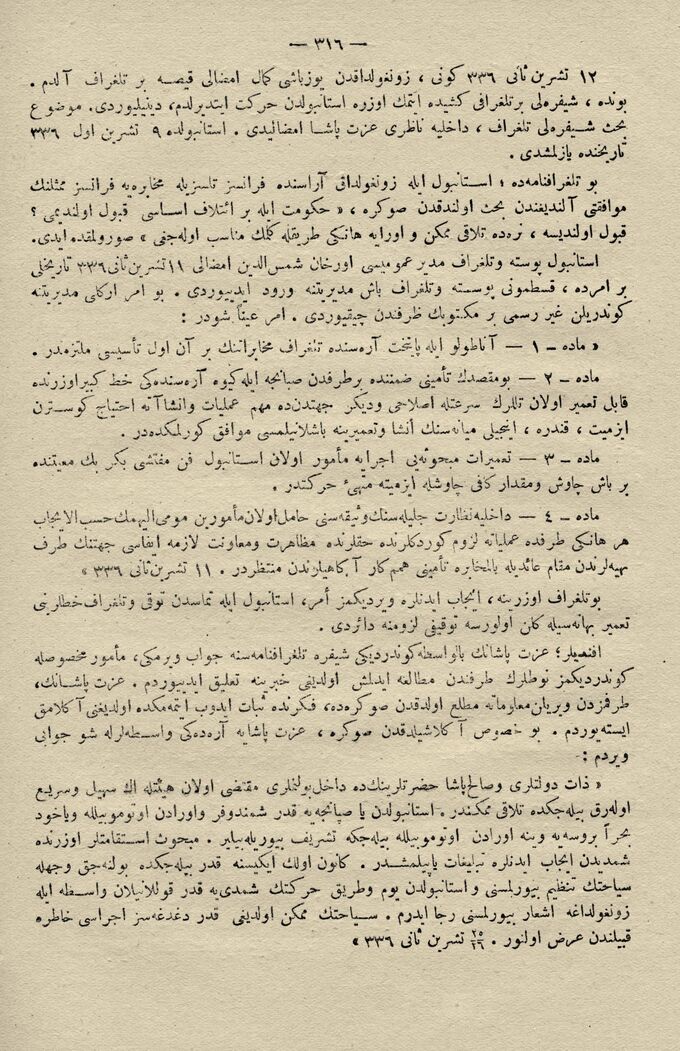 — ٣١٦ —
١٢ تشرین ثانی ٣٣٦ كونی ، زونغولداقدن یوزباشی كمال امضالی قیصه بر تلغراف آلدم .
بونده ، شیفره‌لی برتلغرافی كشیده ایتمك اوزره استانبولدن حركت ایتدیرلدم، دینیلیوردی. موضوع
بحث شیفره‌لی تلغراف ، داخلیه ناظری عزت پاشا امضالیدی . استانبولده ٩ تشرین اول ٣٣٦
تاریخنده یازلمشدی .
بو تلغرافنامه‌ده ؛ استانبول ایله زونغولداق آراسنده فرانسز تلسزیله مخابره‌یه فرانسز ممثلنك
موافقتی آلندیغندن بحث اولندقدن صوكره ، « حكومت ایله بر ائتلاف اساسی قبول اولندیمی ؟
قبول اولندیسه ، نره‌ده تلاقی ممكن و اورایه هانكی طریقله كلمك مناسب اوله‌جغی » صورولمقده ایدی.
استانبول پوسته وتلغراف مدیر عمومیسی اورخان شمس‌الدین امضالی ١١ تشرین ثانی ٣٣٦ تاریخلی
بر امرده ، قسطمونی پوسته وتلغراف باش مدیریتنه ورود ایدییوردی . بو امر اركلی مدیریتنه
كوندریلن غیر رسمی بر مكتوبك ظرفندن چیقیوردی . امر عیناً شودر :
« ماده ـ ١ — آناطولو ایله پایتخت آره‌سنده تلغراف مخابراتنك بر آن اول تأسیسی ملتزمدر .
ماده ـ ٢ — بومقصدك تأمینی ضمننده برطرفدن صبانجه ایله كیوه آره‌سنده‌كی خط كبیر اوزرنده
قابل تعمیر اولان تللرك سرعتله اصلاحی ودیكر جهتدن‌ده مهم عملیات وانشاآته احتیاج كوسترن
ازمیت ، قندره ، اینجیلی میانه‌سنك انشا وتعمیرینه باشلانیلمسی موافق كورلمكده‌در .
ماده ـ ٣ — تعمیرات مبحوثه‌یی اجرایه مأمور اولان استانبول فن مفتشی بكر بك معیتنده
بر باش چاوش ومقدار كافی چاوشله ازمیته متهیء حركتدر .
ماده ـ ٤ — داخلیه نظارت جلیله‌سنك وثیقه‌سنی حامل اولان مأمورین مومی الیهمك حسب الایجاب
هر هانكی طرفده عملیاته لزوم كوردكلرنده حقلرنده مظاهرت ومعاونت لازمه ایفاسی جهتنك طرف
بهیه‌لرندن مقام عائدیله بالمخابره تأمینی همم كار آكاهیلرندن منتظردر . ١١ تشرین ثانی ٣٣٦ »
بو تلغراف اوزرینه ، ایجاب ایدنلره ویردیكمز أمر، استانبول ایله تماسدن توقی وتلغراف خطلرینی
تعمیر بهانه‌سیله كلن اولورسه توقیفی لزومنه دائردی .
افندیلر؛ عزت پاشانك بالواسطه كوندردیكی شیفره تلغرافنامه‌سنه جواب ویرمكی ، مأمور مخصوصله
كوندردیكمز نوطلرك طرفندن مطالعه ایدلمش اولدیغی خبرینه تعلیق ایدییوردم . عزت پاشانك،
طرفمزدن ویریلن معلوماته مطلع اولدقدن صوكره‌ده، فكرنده ثبات ایدوب ایتمه‌مكده اولدیغنی آكلامق
ایسته‌یوردم . بو خصوص آكلاشیلدقدن صوكره ، عزت پاشایه آره‌ده‌كی واسطه‌لرله شو جوابی
ویردم :-
« ذات دولتلری وصالح پاشا حضرتلرینك‌ده داخل بولنملری مقتضی اولان هیئتله اك سهیل وسریع
اوله‌رق بیله‌جكده تلاقی ممكندر . استانبولدن یا صپانجه‌یه قدر شمندوفر واورادن اوتوموبیلله ویاخود
بحراً بروسه‌یه وینه اورادن اوتوموبیلله بیله‌جكه تشریف بیوریله‌بیلیر . مبحوث استقامتلر اوزرنده
شمدیدن ایجاب ایدنلره تبلیغات یاپیلمشدر . كانون اولك ایكیسنه قدر بیله‌جكده بولنه‌جق وجهله
سیاحتك تنظیم بیورلمسنی و استانبولدن یوم وطریق حركتك شمدی‌یه قدر قوللانیلان واسطه ایله
زونغولداغه اشعار بیورلمسنی رجا ایدرم . سیاحتك ممكن اولدیغی قدر دغدغه‌سز اجراسی خاطره
قبیلندن عرض اولنور . ٢٥/٢٦ تشرین ثانی ٣٣٦ »